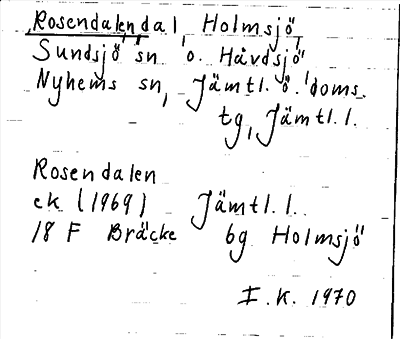 Rosendalendal, Holmsjö,
Sundsjö sn o. Håvdsjö
Nyhems sn, Jämtl. ö. doms.
tg, Jämtl. l.
Rosendalen
ek (1969) Jämtl. l.
18 F Bräcke 6g Holmsjö
I. K. 1970